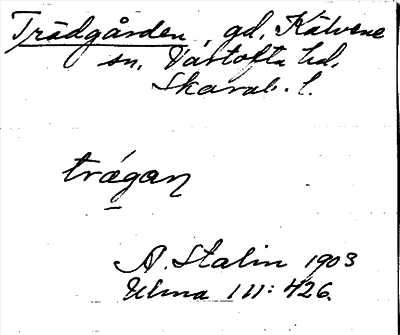 Trädgården, gd, Kälvene
sn, Vartofta hd,
Skarab. l.
trǽgaŋ
A. Stalin 1903
Ulma 111: 426.